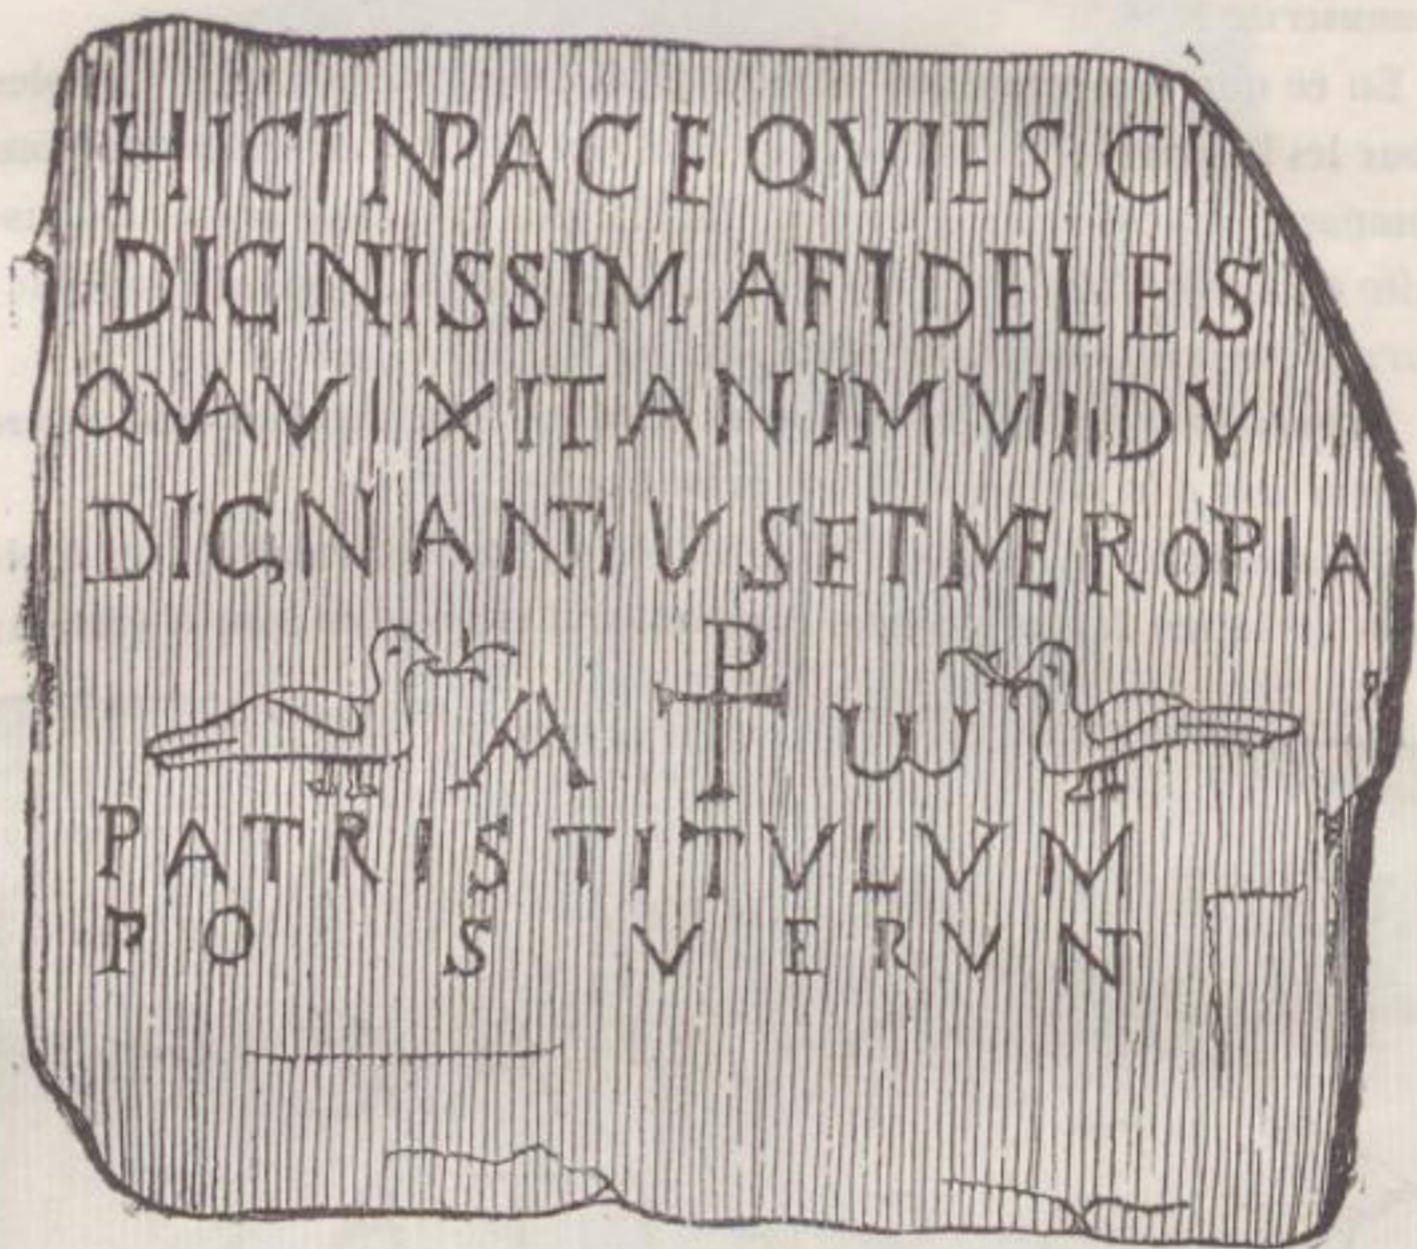 HIC IN PACE QVIESCI
DIGNISSIMA FIDELES
QVA VIXIT AN I M VIII D V
DIGNANTIVS ET MEROPIA
A ⳨ ω
PATRIS TITVLVM
POSVERVNT